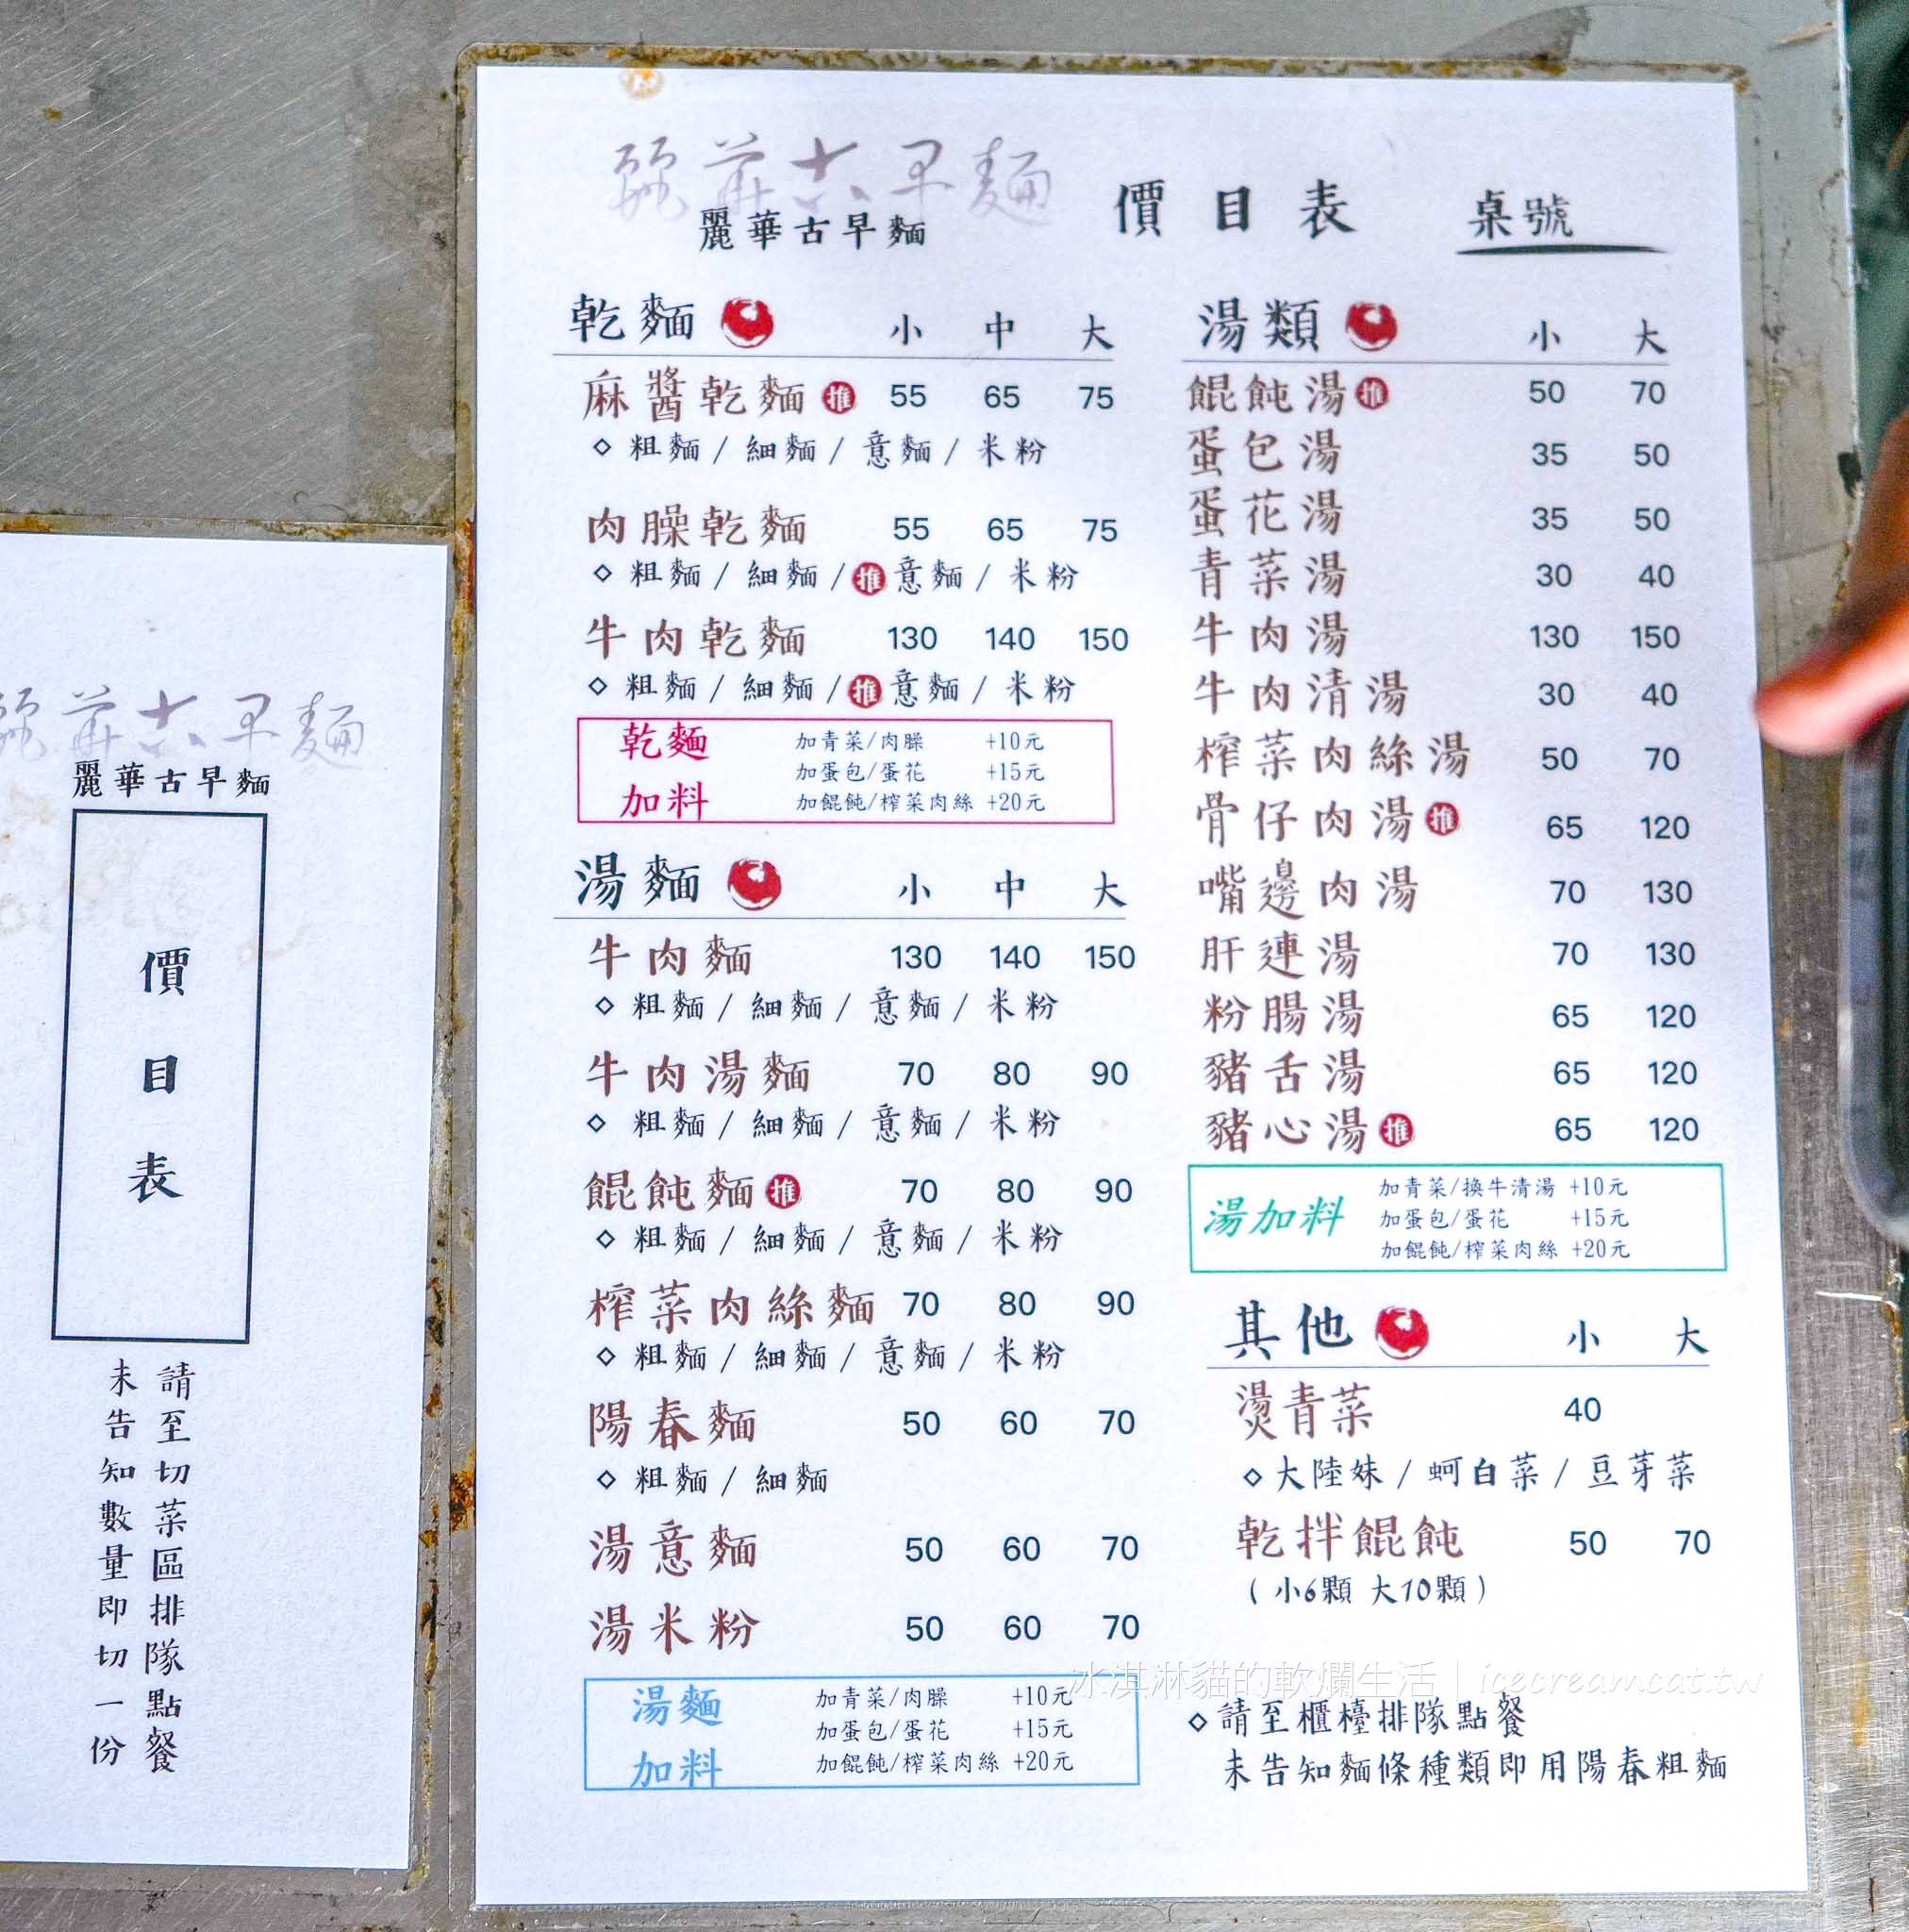 麗華古早麵
麗華古早麵 價目表 桌號
乾麵 小 中 大
麻醬乾麵 推 55 65 75
◇粗麵/細麵/意麵/米粉
肉臊乾麵 55 65 75
◇粗麵/細麵/推意麵/米粉
牛肉乾麵 130 140 150
◇粗麵/細麵/推意麵/米粉
乾麵
加料
加青菜/肉臊 +10元
加蛋包/蛋花 +15元
加餛飩/榨菜肉絲 +20元
湯麵 小 中 大
牛肉麵 130 140 150
◇粗麵/細麵/意麵/米粉
牛肉湯麵 70 80 90
◇粗麵/細麵/意麵/米粉
餛飩麵 推 70 80 90
◇粗麵/細麵/意麵/米粉
榨菜肉絲麵 70 80 90
◇粗麵/細麵/意麵/米粉
陽春麵 50 60 70
◇粗麵/細麵
湯意麵 50 60 70
湯米粉 50 60 70
湯麵
加料
加青菜/肉臊 +10元
加蛋包/蛋花 +15元
加餛飩/榨菜肉絲 +20元
湯類 小 大
餛飩湯 推 50 70
蛋包湯 35 50
蛋花湯 35 50
青菜湯 30 40
牛肉湯 130 150
牛肉清湯 30 40
榨菜肉絲湯 50 70
骨仔肉湯 推 65 120
嘴邊肉湯 70 130
肝連湯 70 130
粉腸湯 65 120
豬舌湯 65 120
豬心湯 推 65 120
湯加料
加青菜/換牛清湯 +10元
加蛋包/蛋花 +15元
加餛飩/榨菜肉絲 +20元
其他 小 大
燙青菜 40
◇大陸妹/蚵白菜/豆芽菜
乾拌餛飩 50 70
(小6顆 大10顆)
冰淇淋貓的軟爛生活|icecreamcat.tw
◇請至櫃檯排隊點餐
未告知麵條種類即用陽春粗麵
麗華古早麵
麗華古早麵
價目表
請至切菜區排隊點餐
未告知數量即切一份